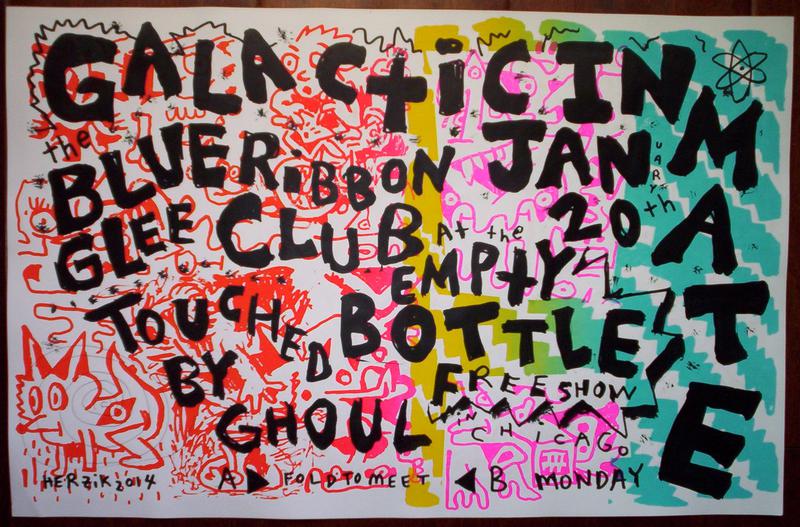 GALACTiC INMATE
the
BLUE RiBBON
GLEE CLUB
TOUCHED
BY
GHOUL
JANUARY
20th
At the
EMPtY
BOTTLE
FREE SHOW
IN CHICAGO
HERZiK 2014
A ▶ FOLD TO MEET ◀ B
MONDAY